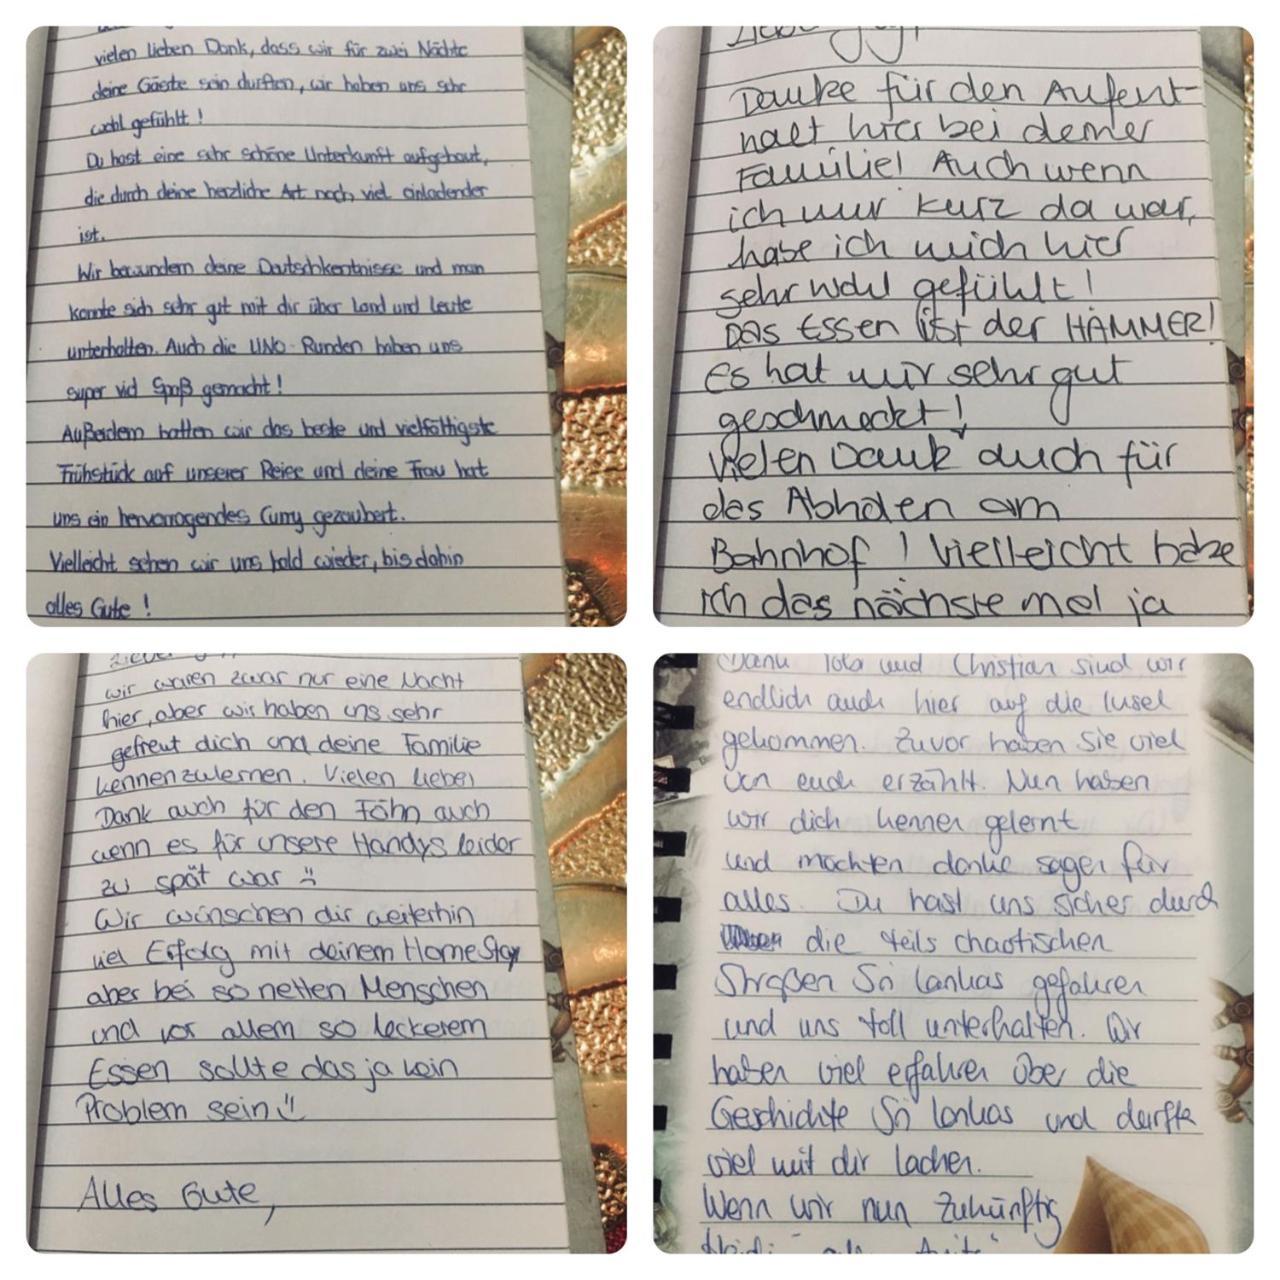 vielen lieben Dank, dass wir für zwei Nächte
deine Gäste sein durften, wir haben uns sehr
wohl gefühlt!
Du hast eine sehr schöne Unterkunft aufgebaut,
die durch deine herzliche Art noch viel einladender
ist.
Wir bewundern deine Deutschkentnisse und man
konnte sich sehr gut mit dir über Land und Leute
unterhalten. Auch die UNO-Runden haben uns
super viel Spaß gemacht!
Außerdem hatten wir das beste und vielfältigste
Frühstück auf unserer Reise und deine Frau hat
uns ein hervorragendes Curry gezaubert.
Vielleicht sehen wir uns bald wieder, bis dahin
alles Gute!
Danke für den Aufent-
halt hier bei deiner
Familie! Auch wenn
ich nur kurz da war,
habe ich mich hier
sehr wohl gefühlt!
Das Essen ist der HAMMER!
Es hat mir sehr gut
geschmeckt!
Vielen Dank auch für
das Abholen am
Bahnhof! Vielleicht habe
ich das nächste mal ja
wir waren zwar nur eine Nacht
hier, aber wir haben uns sehr
gefreut dich und deine Familie
kennenzulernen. Vielen lieben
Dank auch für den Föhn auch
wenn es für unsere Handys leider
zu spät war
Wir wünschen dir weiterhin
viel Erfolg mit deinem HomeStay
aber bei so netten Menschen
und vor allem so leckerem
Essen sollte das ja kein
Problem sein
Alles Gute,
und Christian sind wir
endlich auch hier auf die Insel
gekommen. Zuvor haben Sie viel
von euch erzählt. Nun haben
wir dich kennen gelernt
und möchten danke sagen für
alles. Du hast uns sicher durch
die teils chaotischen
Straßen Sri Lankas gefahren
und uns toll unterhalten. Wir
haben viel erfahren über die
Geschichte Sri Lankas und durfte
viel mit dir lachen.
Wenn wir nun zukünftig